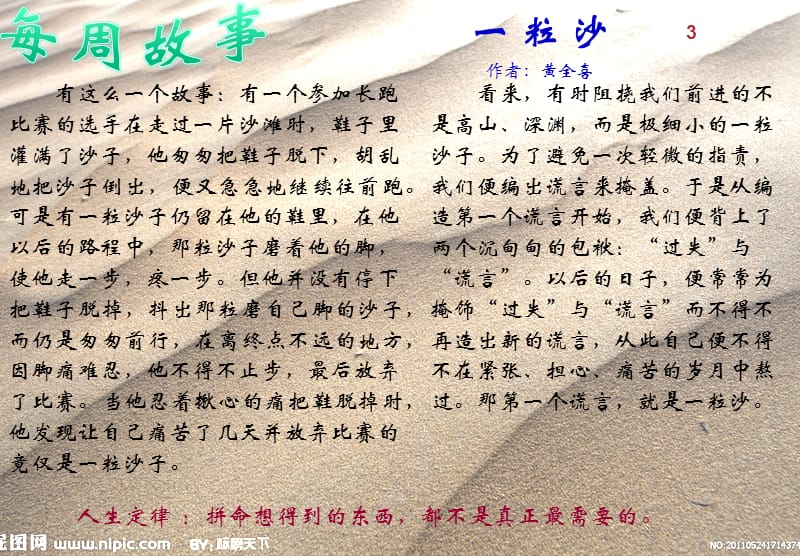 每周故事
一粒沙
3
作者：黄全喜
有这么一个故事：有一个参加长跑
比赛的选手在走过一片沙滩时，鞋子里
灌满了沙子，他匆匆把鞋子脱下，胡乱
地把沙子倒出，便又急急地继续往前跑。
可是有一粒沙子仍留在他的鞋里，在他
以后的路程中，那粒沙子磨着他的脚，
使他走一步，疼一步。但他并没有停下
把鞋子脱掉，抖出那粒磨自己脚的沙子，
而仍是匆匆前行，在离终点不远的地方，
因脚痛难忍，他不得不止步，最后放弃
了比赛。当他忍着揪心的痛把鞋脱掉时，
他发现让自己痛苦了几天并放弃比赛的
竟仅是一粒沙子。
看来，有时阻挠我们前进的不
是高山、深渊，而是极细小的一粒
沙子。为了避免一次轻微的指责，
我们便编出谎言来掩盖。于是从编
造第一个谎言开始，我们便背上了
两个沉甸甸的包袱：“过失”与
“谎言”。以后的日子，便常常为
掩饰“过失”与“谎言”而不得不
再造出新的谎言，从此自己便不得
不在紧张、担心、痛苦的岁月中熬
过。那第一个谎言，就是一粒沙。
人生定律：拼命想得到的东西，都不是真正最需要的。
昵图网
www.nipic.com
BY：脉鹏天下
NO:201105241714374